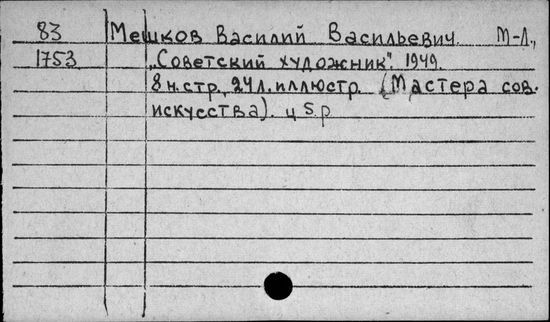 83 Мешков Василий Васильевич. М-Л.,
1753 „Советский художник". 1949.
8 н.стр., 24 л. иллюстр. (Мастера сов.
искусства). ц 5 р